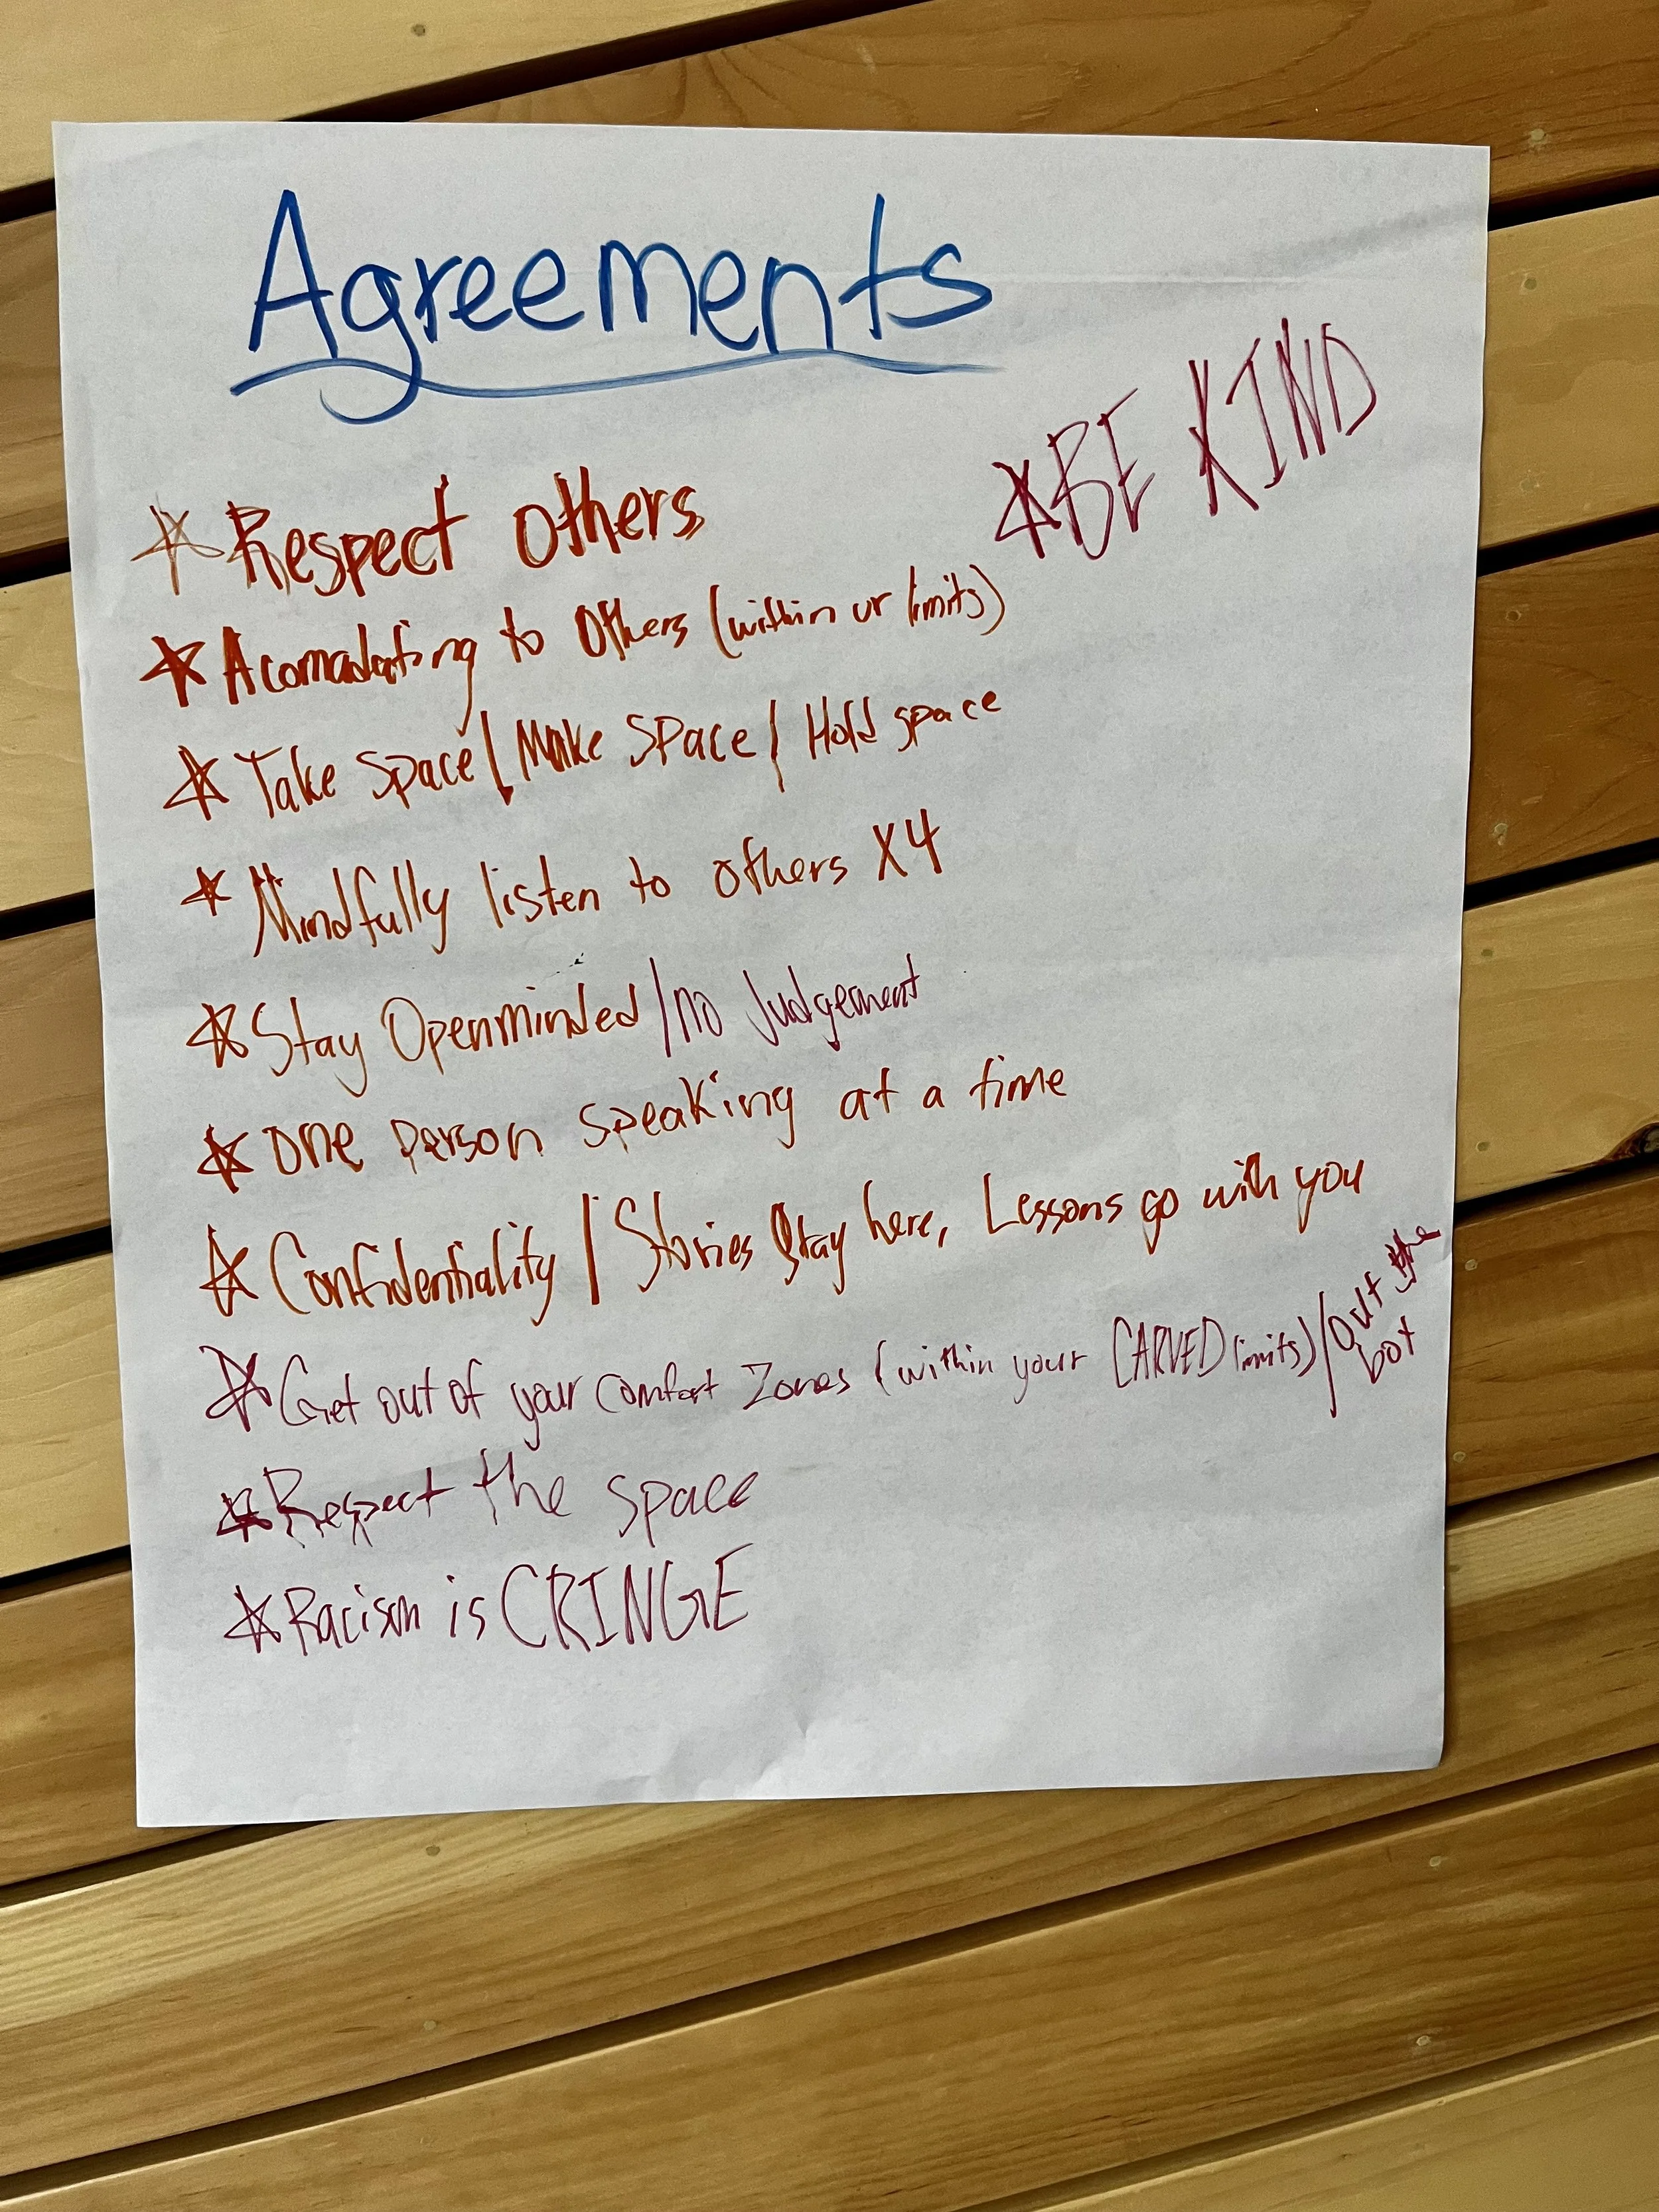 Agreements
☆BE KIND
☆Respect others
☆Acomadating to Others (within ur limits)
☆Take space/Make space/Hold space
☆Mindfully listen to others X4
☆Stay Openminded/no Judgement
☆One person speaking at a time
☆Confidentiality/Stories stay here, Lessons go with you
☆Get out of your comfort Zones (within your CARVED limits)/out the box
☆Respect the space
☆Racism is CRINGE